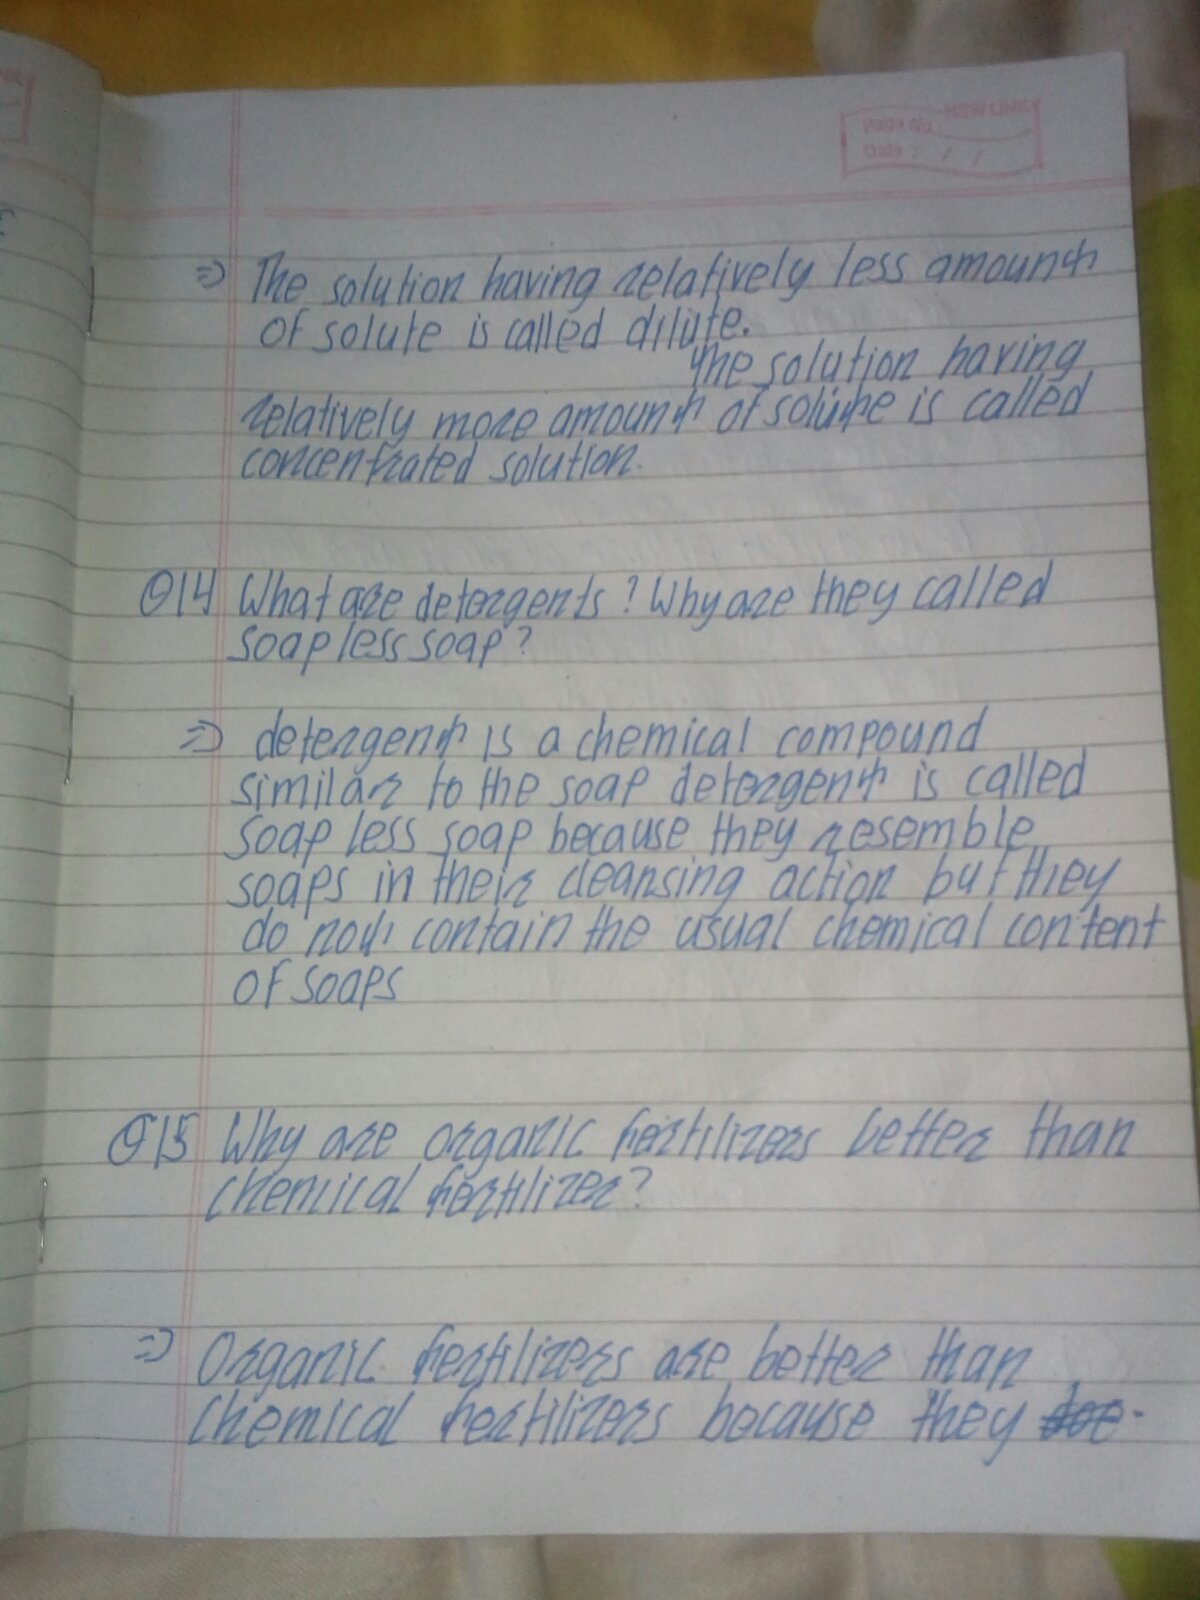 NEW LINK
Page No.
Date : / /
⇒ The solution having relatively less amount
of solute is called dilute.
The solution having
relatively more amount of solute is called
concentrated solution.
Q14 What are detergents ? Why are they called
soap less soap ?
⇒ detergent is a chemical compound
similar to the soap detergent is called
soap less soap because they resemble
soaps in their cleansing action but they
do not contain the usual chemical content
of soaps
Q15 Why are organic fertilizers better than
chemical fertilizer?
⇒ Organic fertilizers are better than
chemical fertilizers because they